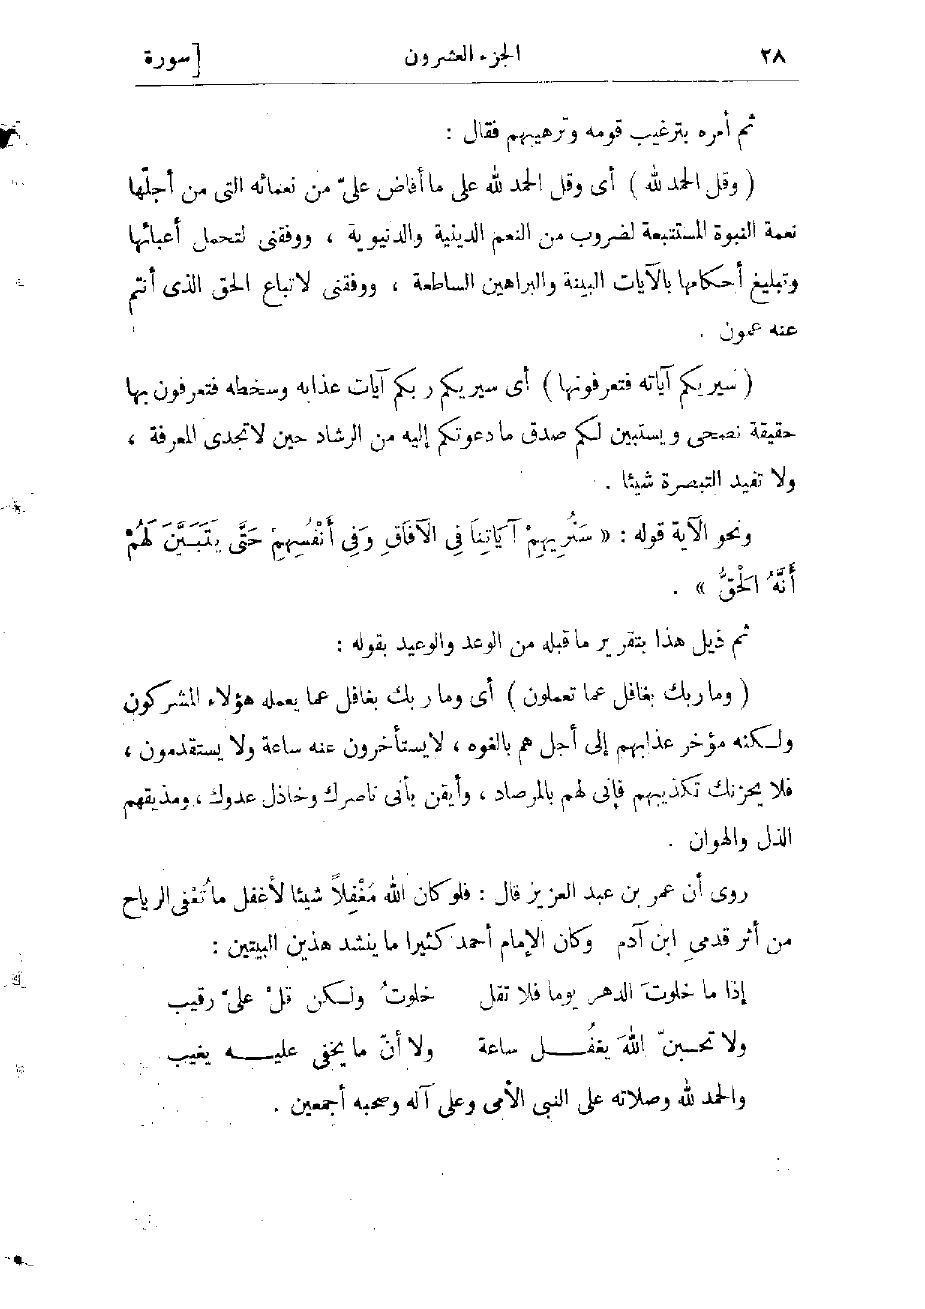 ٢٨ الجزء العشرون [سورة
ثم أمره بترغيب قومه وترهيبهم فقال :
( وقل الحمد لله ) أى وقل الحمد لله على ما أفاض علىّ من نعمائه التى من أجلّها
نعمة النبوة المستتبعة لضروب من النعم الدينية والدنيوية ، ووفقنى لتحمل أعبائها
وتبليغ أحكامها بالآيات البينة والبراهين الساطعة ، ووفقنى لاتباع الحق الذى أنتم
عنه عمون .
( سيريكم آياته فتعرفونها ) أى سيريكم ربكم آيات عذابه وسخطه فتعرفون بها
حقيقة نصحى ويستبين لكم صدق ما دعوتكم إليه من الرشاد حين لا تجدى المعرفة ،
ولا تفيد التبصرة شيئا .
ونحو الآية قوله : « سَنُرِيهِمْ آيَاتِنَا فِى الْآفَاقِ وَفِى أَنْفُسِهِمْ حَتَّى يَتَبَيَّنَ لَهُمْ
أَنَّهُ الْحَقُّ » .
ثم ذيل هذا بتقرير ما قبله من الوعد والوعيد بقوله :
( وما ربك بغافل عما تعملون ) أى وما ربك بغافل عما يعمله هؤلاء المشركون
ولكنه مؤخر عذابهم إلى أجل هم بالغوه ، لا يستأخرون عنه ساعة ولا يستقدمون ،
فلا يحزنك تكذيبهم فإنى لهم بالمرصاد ، وأيقن بأنى ناصرك وخاذل عدوك ، ومذيقهم
الذل والهوان .
روى أن عمر بن عبد العزيز قال : فلو كان الله مَغْفِلاً شيئا لأغفل ما تُعْفِى الرياح
من أثر قدمى ابن آدم وكان الإمام أحمد كثيرا ما ينشد هذين البيتين :
إذا ما خلوتَ الدهر يوما فلا تقل خلوتُ ولكن قلْ علىّ رقيب
ولا تحسبنّ اللهَ يغفُل ساعة ولا أنّ ما يخفى عليه يغيب
والحمد لله وصلاته على النبى الأمى وعلى آله وصحبه أجمعين .